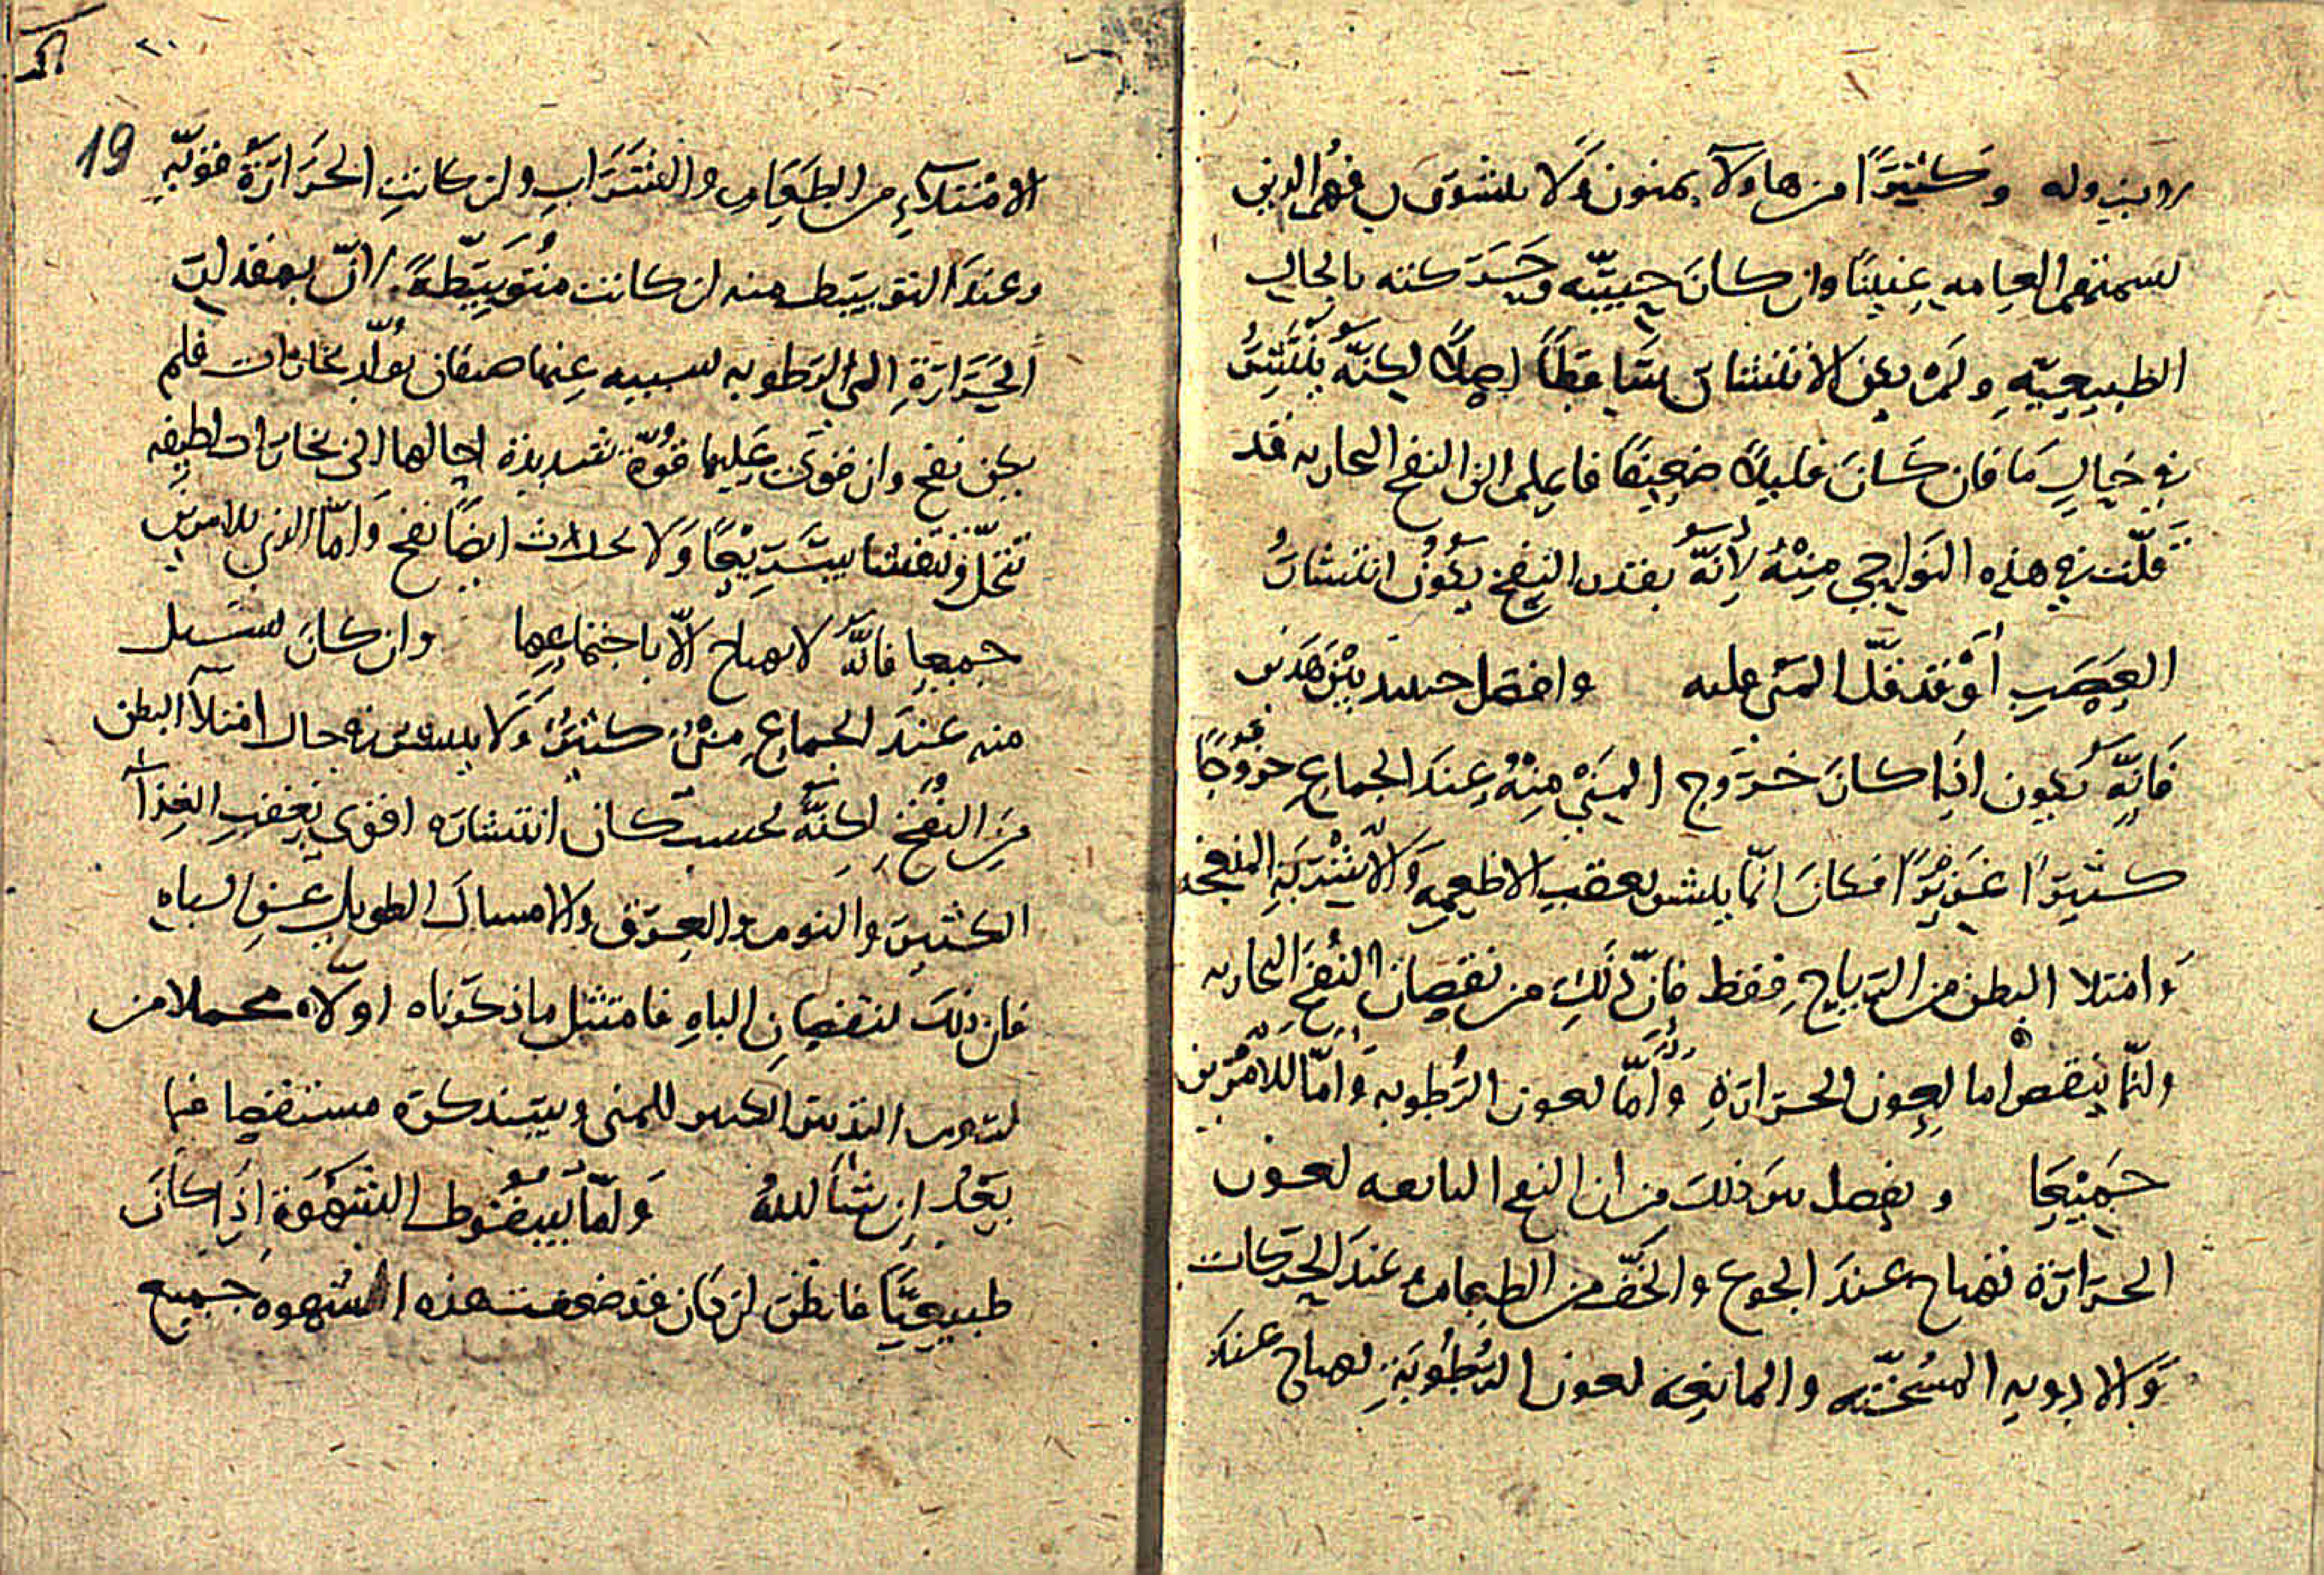 وكثيرًا من هاولآ يمنون ولا ينتشرون فهم الذين
تسميهم العامه عِنينًا وان كانَ حسّه وحركته بالحال
الطبيعيّهِ ولم يكن الانتشار ساقطًا اصلًا لكنّهُ ينتشرُ
في حالٍ مَا فان كَانَ قليلًا ضعِيفًا فاعلم ان النفخ البخاريه قد
قلّت في هذه النواحي مِنْهُ لأنهُ بقدر النفخ يكونُ انتشارُ
العَصَبِ أوْ قد قلّ المنى عليه وافصل حينيذ بَيْنَ هَذين
فَانهُ يكون اذا كانَ خرُوج المَنِيْ مِنْهُ عِندَ الجماعِ خرُوجًا
كثيرًا غزيرًا فكانَ انّما ينتشر بعقب الاطعمه وَالاشرَبَهِ المنفخه
وَامتلا البطن من الرياحِ فقط فانّ ذَلِكَ من نقصان النفخ البخاريه
وانّما ينقص اما لعون الحرارةِ وَأمّا لعون الرُطوبه وَأمّا للأمرَين
جَمِيْعًا وفصل بين ذلكَ من ان النفخ التابعه لعون
الحرارة تهيج عندَ الجوع والخفّ من الطعام وعندَ الحركات
وَالادويه المسُخّنه والمانِعه لعون الرُطُوبَةِ تهيج عندَ
19
الامتلآءِ من الطَعَامِ والشَرَابِ وان كانتِ الحَرَارَةُ قوّيهِ
وعندَ التوسط منه ان كانت مُتوَسّطةً لانّ بمقدار
الحَرَارَةِ الى الرطوبه لسببه عنها صنفان تولّد بخارات فلم
يكن نفخ وان قوى عَليها قُوّة شديدة احالها الى بخارات لطيفه
تتحلّل وتتفشا سَرِيْعًا وَلا يحدث ايضًا نفخ وَامّا الذي للامرين
جميعا فانّهُ لا يهيج الّا باجتماعهما وان كانَ يسيل
منه عندَ الجماعِ منيٌ كثيرٌ وَلا ينتشر في حال امتلأ البطن
مِنَ النُفخِ لكنّهُ بحسب كان انتشاره اقوى بِعَقبِ الغِذآ
الكثير والنوم والعرق والامساك الطويل عن الباه
فان ذلك لنقصانِ الباهِ فامتثل ما ذكرناه اولًا مجملا من
لزوم التدبير المكثر للمنى وسنذكره مستقصا فيما
بَعْدُ ان شَأ اللهُ وَامّا سُقوط الشَهْوَةِ اذَا كَانَ
طبيعيًّا فانظر ان كان قد ضعفت هذه الشهوه جميع